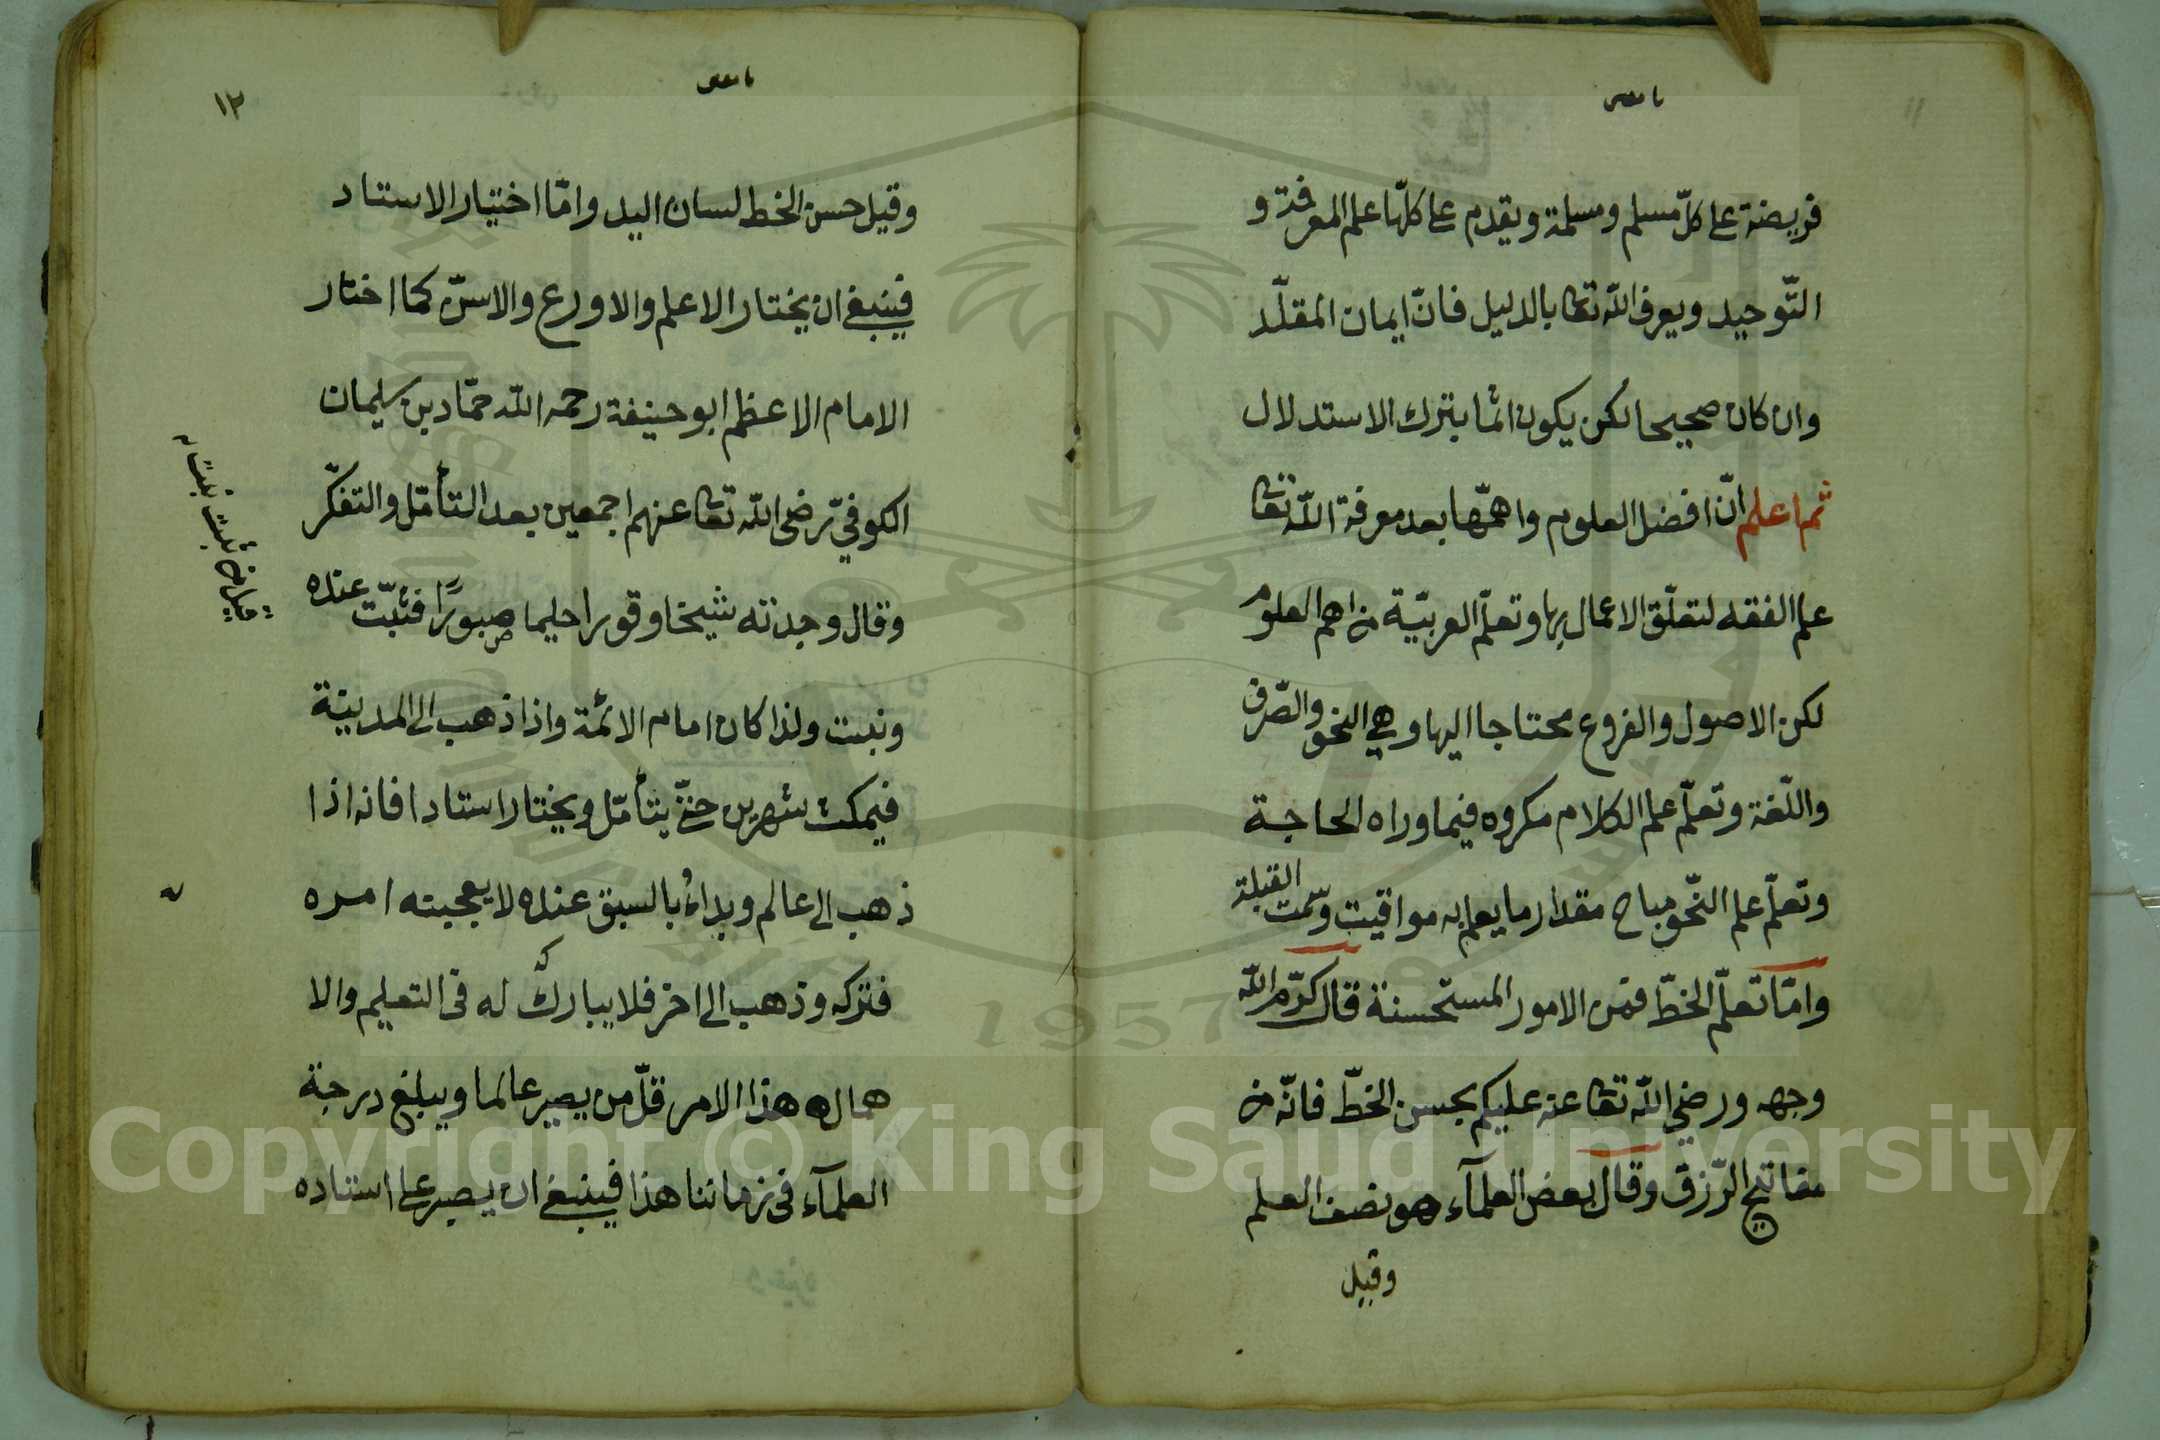 ١١
فريضة على كلّ مسلم ومسلمة ويقدم على كلّها علم المعرفة و
التّوحيد ويعرف اللّه تعا بالدليل فانّ ايمان المقلّد
وان كان صحيحا لكن يكون اثما بترك الاستدلال
ثم اعلم انّ افضل العلوم واهمّها بعد معرفة اللّه تعا
علم الفقه لتعلّق الاعمال بها وتعلّم العربيّة من اهم العلوم
لكن الاصول والفروع محتاجا اليها وهي النحو والصّرف
واللّغة وتعلّم علم الكلام مكروه فيما وراه الحاجة
وتعلّم علم النّحو مباح مقدار ما يعلم به مواقيت وسمت القبلة
وامّا تعلّم الخطّ فمن الامور المستحسنة قال كرّم اللّه
وجهه ورضي اللّه تعا عنه عليكم بحسن الخطّ فانّه من
مفاتيح الرّزق وقال بعض العلمآء هو نصف العلم
وقيل
١٢
وقيل حسن الخط لسان اليد وامّا اختيار الاستاد
فينبغي ان يختار الاعلم والاورع والاسنّ كما اختار
الامام الاعظم ابو حنيفة رحمه اللّه حمّاد بن سليمان
الكوفيّ رضى اللّه تعا عنهم اجمعين بعد التأمّل والتفكّر
وقال وجدته شيخا وقورا حليما صبورًا فثبّت عنده
ونبت ولذا كان امام الائمة واذا ذهب الى المدينة
فيمكث شهرين حتّى يتأمّل ويختار استادا فانه اذا
ذهب الى عالم وبداءُ بالسبق عنده لا يعجبته امره
فتركه وذهب الى اخر فلا يبارك له فى التعليم والا
هماله هذا الامر قلّ من يصير عالما ويبلغ درجة
العلمآء فى زماننا هذا فينبغى ان يصير على استاده
Copyright © King Saud University
1957